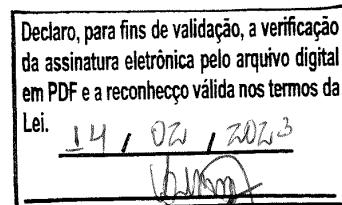 Declaro, para fins de validação, a verificação
da assinatura eletrônica pelo arquivo digital
em PDF e a reconhecço válida nos termos da
Lei. 14 / 02 / 2023